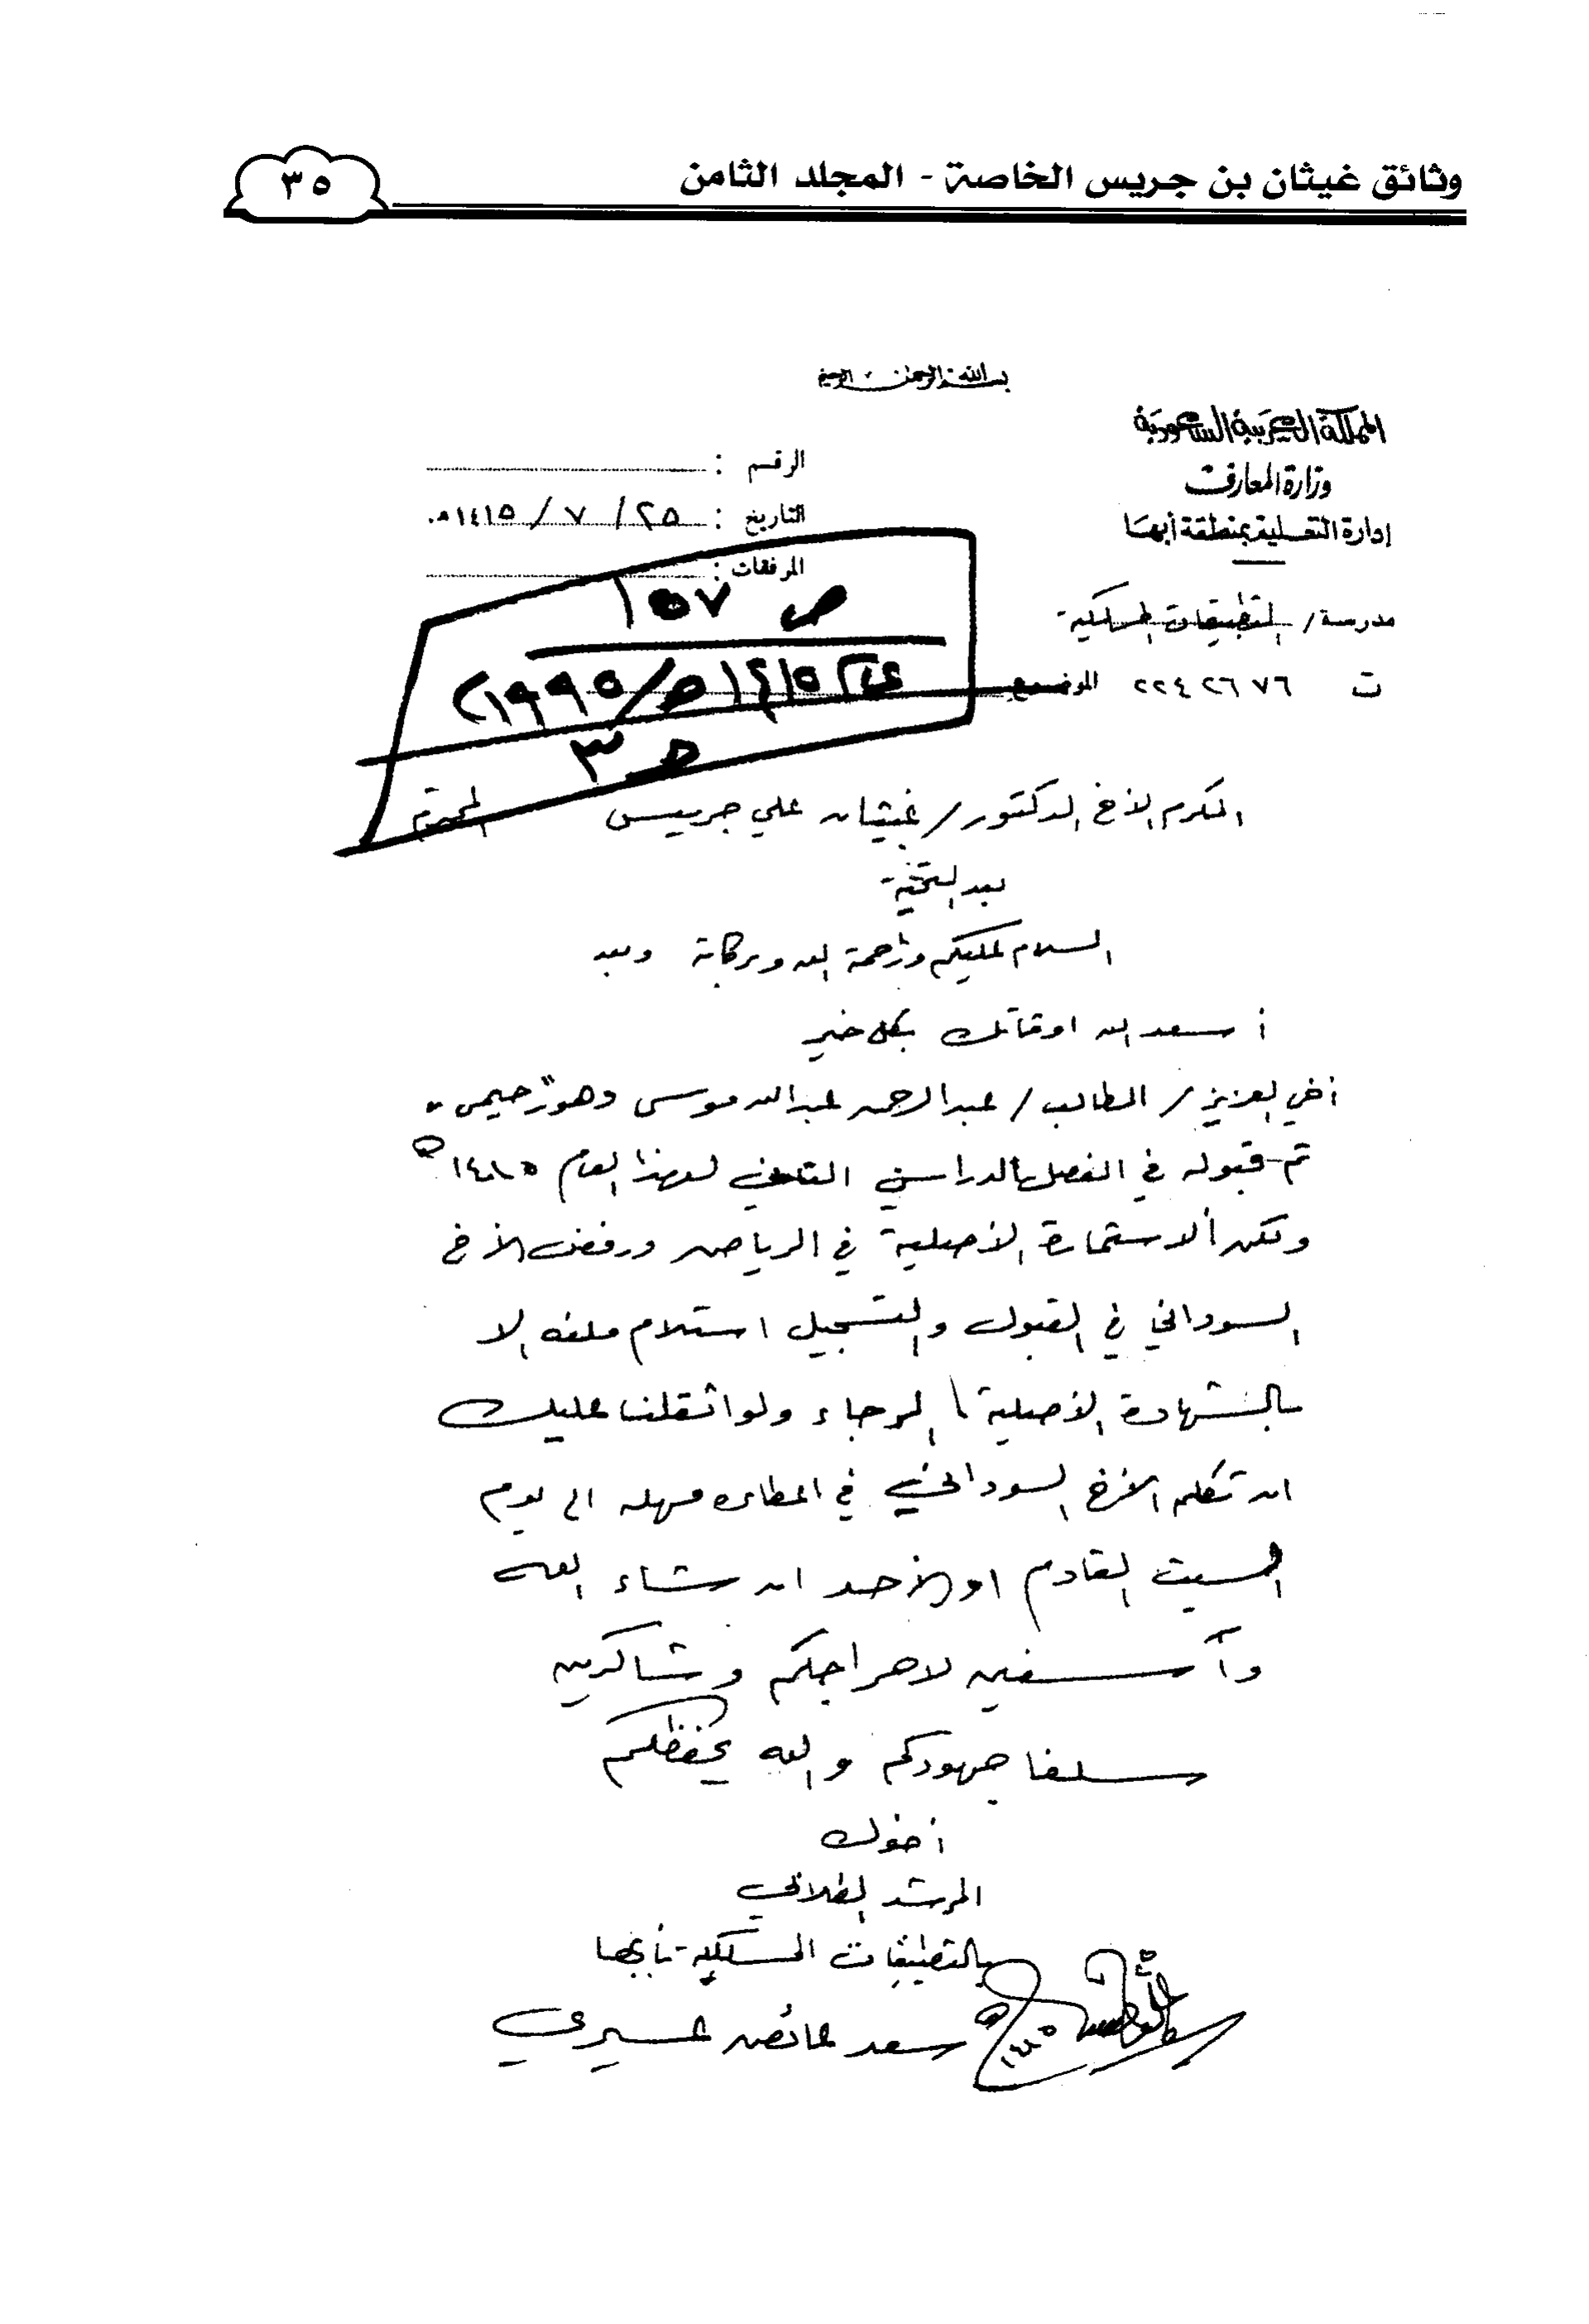 وثائق غيثان بن جريس الخاصة - المجلد الثامن
٣٥
بسم الله الرحمن الرحيم
المملكة العربية السعودية
وزارة المعارف
إدارة التعليم بمنطقة أبها
الرقم :
التاريخ : ٢٥ / ٧ / ١٤١٥هـ
المرفقات :
مدرسة / التطبيقات المسلكية
ت ٢٢٤٢٦٧٦ الموضوع
ص ١٥٧
١٤١٥هـ / ١٩٩٥
المكرم الأخ الدكتور / غيثان علي جريس المحترم
بعد التحية
السلام عليكم ورحمة الله وبركاته وبعد
أسعد الله اوقاتك بكل خير
أخي العزيز / الطالب / عبدالرحمن عبدالله موسى وهو
تم قبوله في الفصل الدراسي الثاني لهذا العام ١٤١٥هـ
ولكن الاستمارة الأصلية في الرياض ورفض الأخ
السوداني في القبول والتسجيل استلام ملفه الا
بالشهادة الأصلية الرجاء ولو اثقلنا عليك
ان تكلم الأخ السوداني في اعطاءه مهله الى يوم
السبت القادم او الأحد ان شاء الله
وآسفين لاحراجكم وشاكرين
سلفا جهودكم والله يحفظكم
أخوك
المرشد الطلابي
بالتطبيقات المسلكية بأبها
سعد عائض عسيري